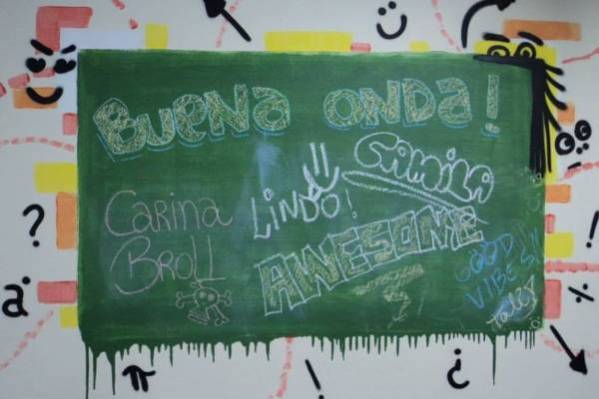 BUENA ONDA!
CAMILA
LINDO!
CARINA
BROLL
AWESOME
GOOD
VIBES!!
?
!
a
÷
π
!
¿